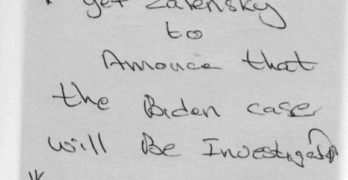 get Zalensky
to
Annouce that
the Biden case
will Be Investigated